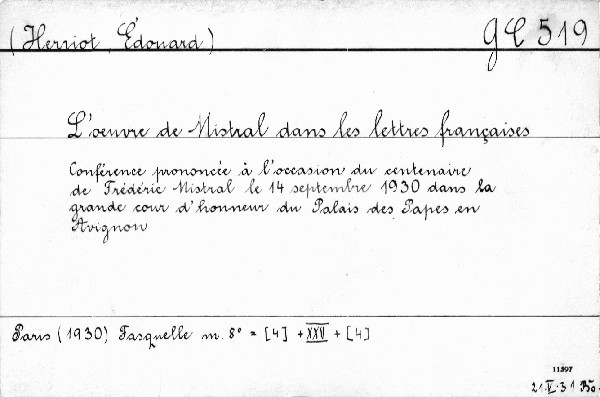 (Herriot, Édouard) GC 519
L'oeuvre de Mistral dans les lettres françaises
Conférence prononcée à l'occasion du centenaire
de Frédéric Mistral le 14 septembre 1930 dans la
grande cour d'honneur du Palais des Papes en
Avignon
Paris (1930) Fasquelle m. 8° = [4] + XXV + [4]
11397
21.V.31 Bo.